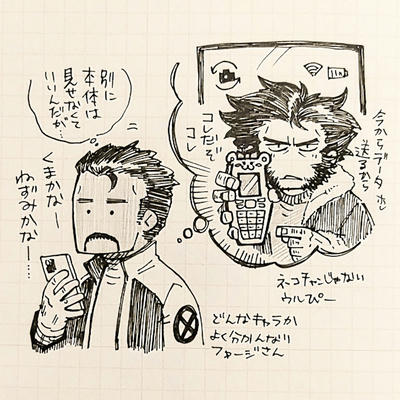 今からデータ
送るから
コレだぞ
コレ
別に
本体は
見せなくて
いいんだが…
くまかなー
ねずみかなー……
ネコチャンじゃない
ウルぴー
どんなキャラか
よく分かんなり
ファージさん